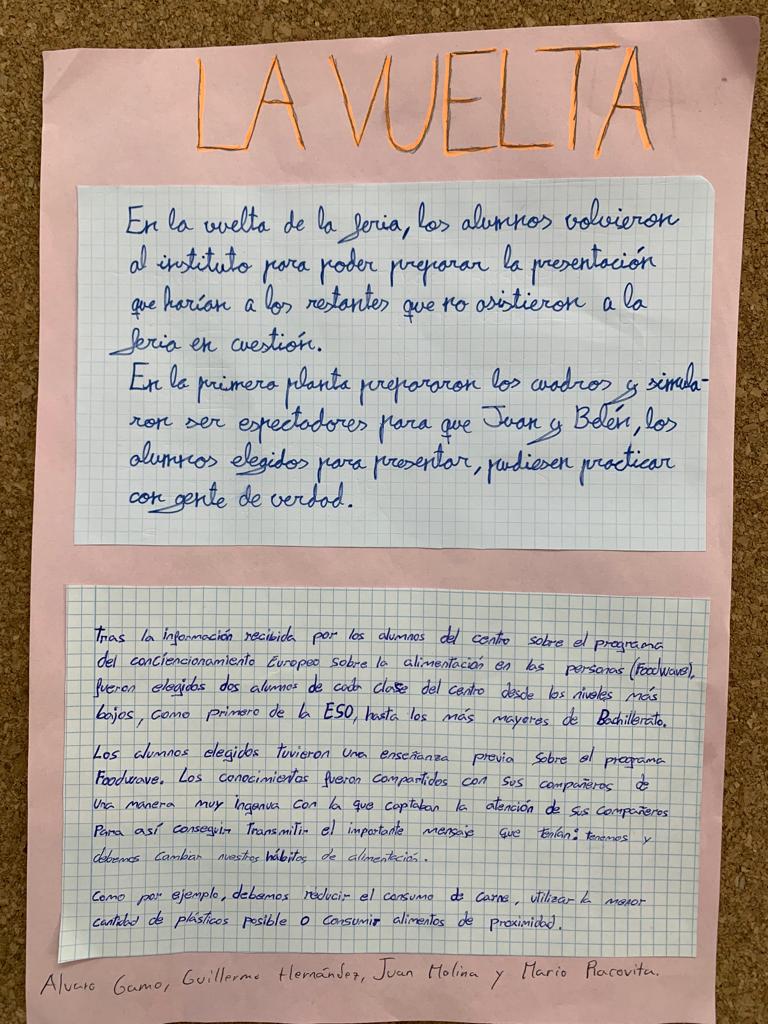 LA VUELTA
En la vuelta de la feria, los alumnos volvieron
al instituto para poder preparar la presentación
que harían a los restantes que no asistieron a la
feria en cuestión.
En la primera planta prepararon los cuadros y simula-
ron ser espectadores para que Juan y Belén, los
alumnos elegidos para presentar, pudiesen practicar
con gente de verdad.
Tras la información recibida por los alumnos del centro sobre el programa
del conciencionamiento Europeo sobre la alimentación en las personas (Foodwave),
fueron elegidos dos alumnos de cada clase del centro desde los niveles más
bajos, como primero de la ESO, hasta los más mayores de Bachillerato.
Los alumnos elegidos tuvieron una enseñanza previa sobre el programa
Foodwave. Los conocimientos fueron compartidos con sus compañeros de
una manera muy ingenua con la que captaban la atención de sus compañeros
Para así conseguir transmitir el importante mensaje que tenían: tenemos y
debemos cambiar nuestros hábitos de alimentación.
Como por ejemplo, debemos reducir el consumo de carne, utilizar la menor
cantidad de plásticos posible o consumir alimentos de proximidad.
Alvaro Gamo, Guillermo Hernández, Juan Molina y Mario Racovita.